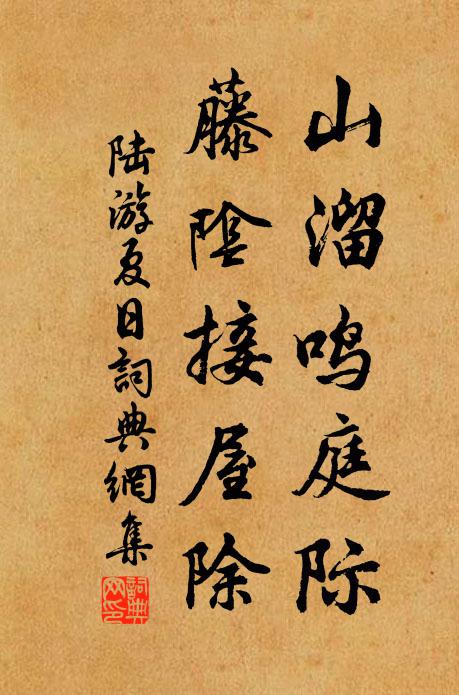 山溜鸣庭际
藤阴接屋除
陆游夏日詞典網集
詞典网印